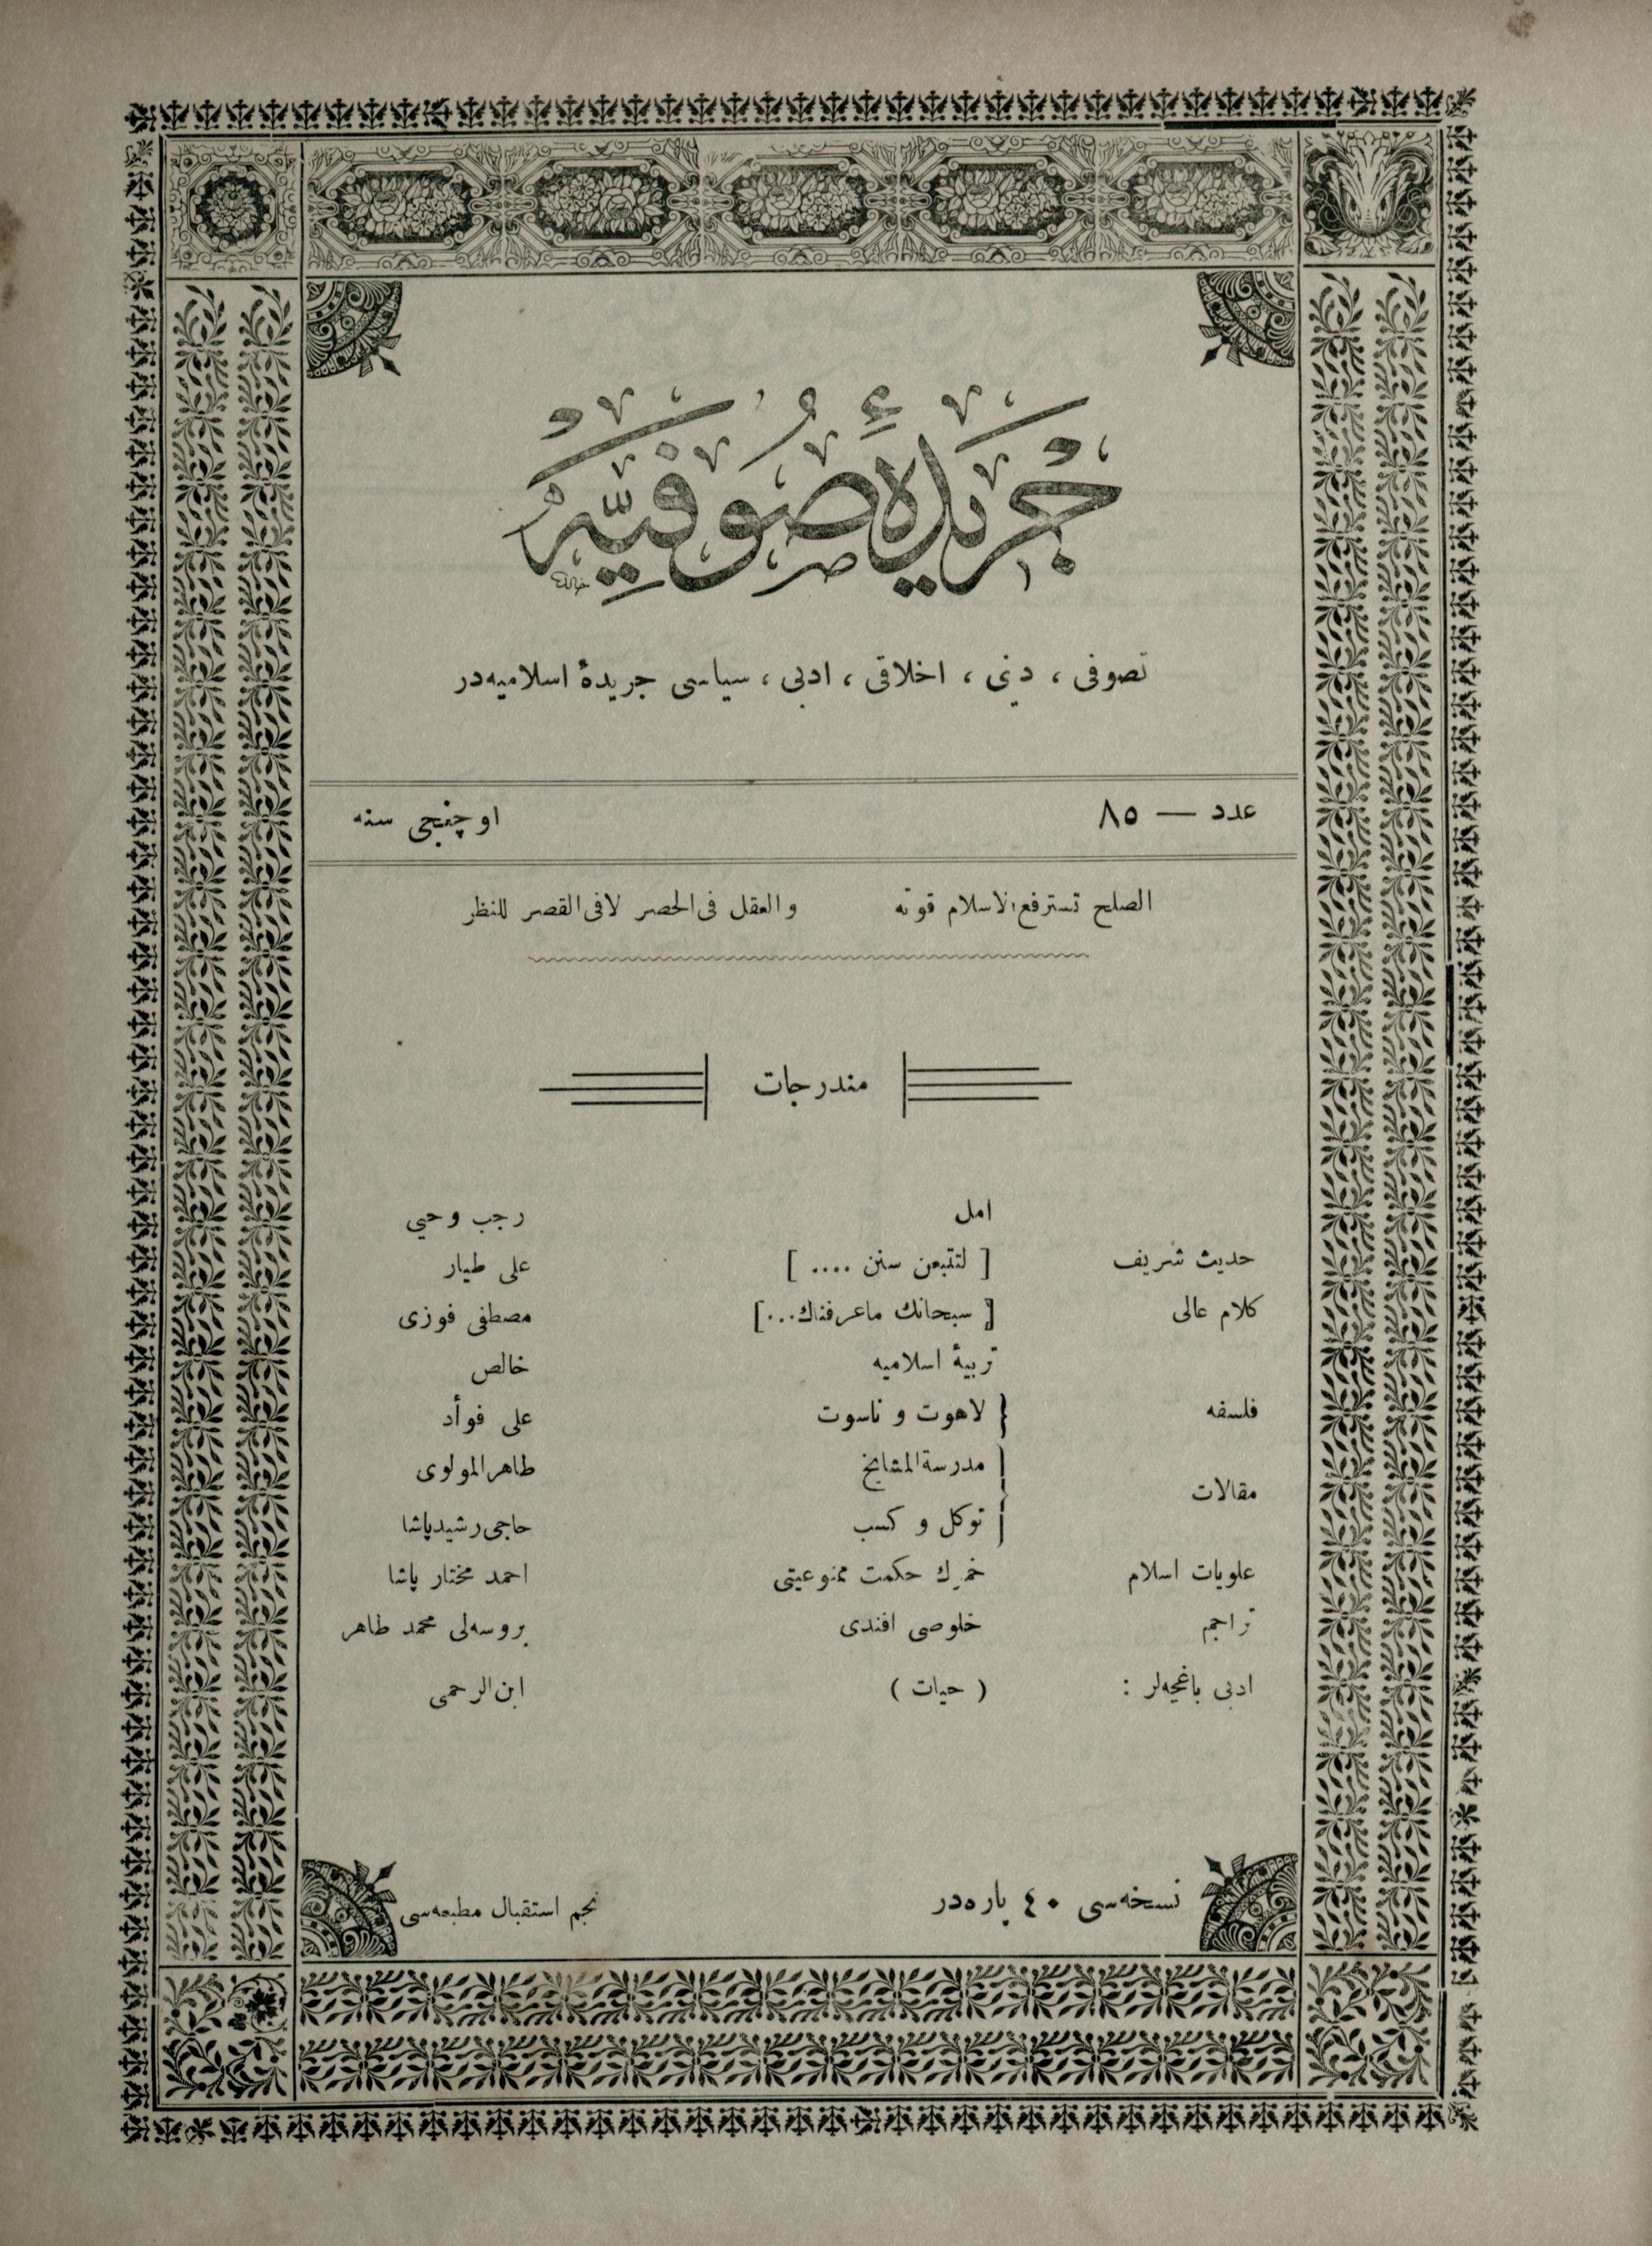 جریدهٔ صوفیه
تصوفی ، دینی ، اخلاقی ، ادبی ، سیاسی جریدهٔ اسلامیه‌در
عدد — ٨٥ اوچنجی سنه
الصلح تسترفع الاسلام قوته والعقل فی‌الحصر لافی‌القصر للنظر
مندرجات
امل رجب وحیی
حدیث شریف [ لتتبعن سنن .... ] علی طیار
کلام عالی [ سبحانك ماعرفناك... ] مصطفی فوزی
تربیهٔ اسلامیه خالص
فلسفه } لاهوت و ناسوت علی فوأد
مقالات { مدرسةالمشایخ طاهرالمولوی
توکل و کسب حاجی‌رشیدپاشا
علویات اسلام خمرك حکمت ممنوعیتی احمد مختار پاشا
تراجم خلوصی افندی بروسه‌لی محمد طاهر
ادبی باغچه‌لر : ( حیات ) ابن‌الرحمی
نسخه‌سی ٤٠ پاره‌در نجم استقبال مطبعه‌سی